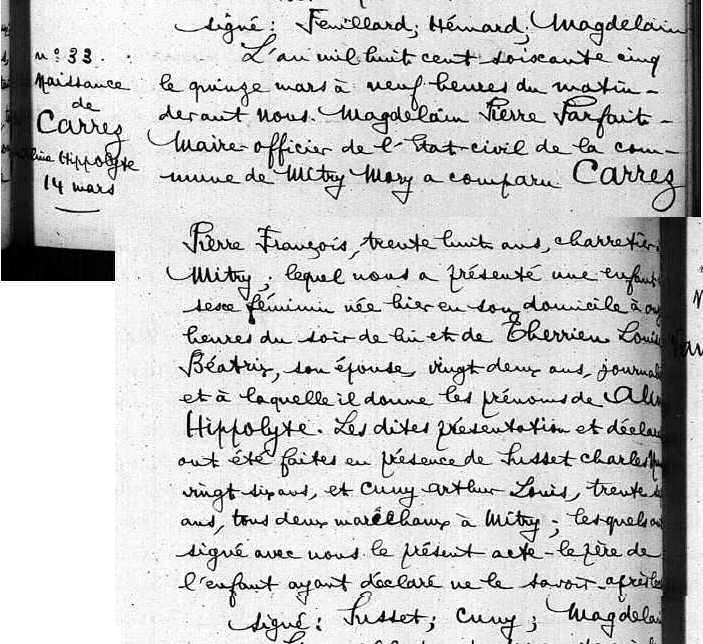 signé: Feuillard; Hémard; Magdelain
n° 33.
Naissance
de
Carrez
Hippolyte
14 mars
L'an mil huit cent soixante cinq
le quinze mars à neuf heures du matin -
devant nous. Magdelain Pierre Parfait -
Maire officier de l'Etat-civil de la com-
mune de Mitry Mory a comparu Carrez
Pierre François, trente huit ans, charretier
Mitry; lequel nous a présenté une enfant
sexe féminin née hier en son domicile à
heures du soir de lui et de Therrien Louise
Béatrix, son épouse, vingt deux ans, journal
et à laquelle il donne les prénoms de Alin
Hippolyte. Les dites présentation et déclara
ont été faites en présence de Susset Charles
vingt six ans, et Cuny Arthur Louis, trente
ans, tous deux maréchaux à Mitry; lesquels ont
signé avec nous le présent acte - le père de
l'enfant ayant déclaré ne le savoir - après lec
signé: Susset; Cuny; Magdelai